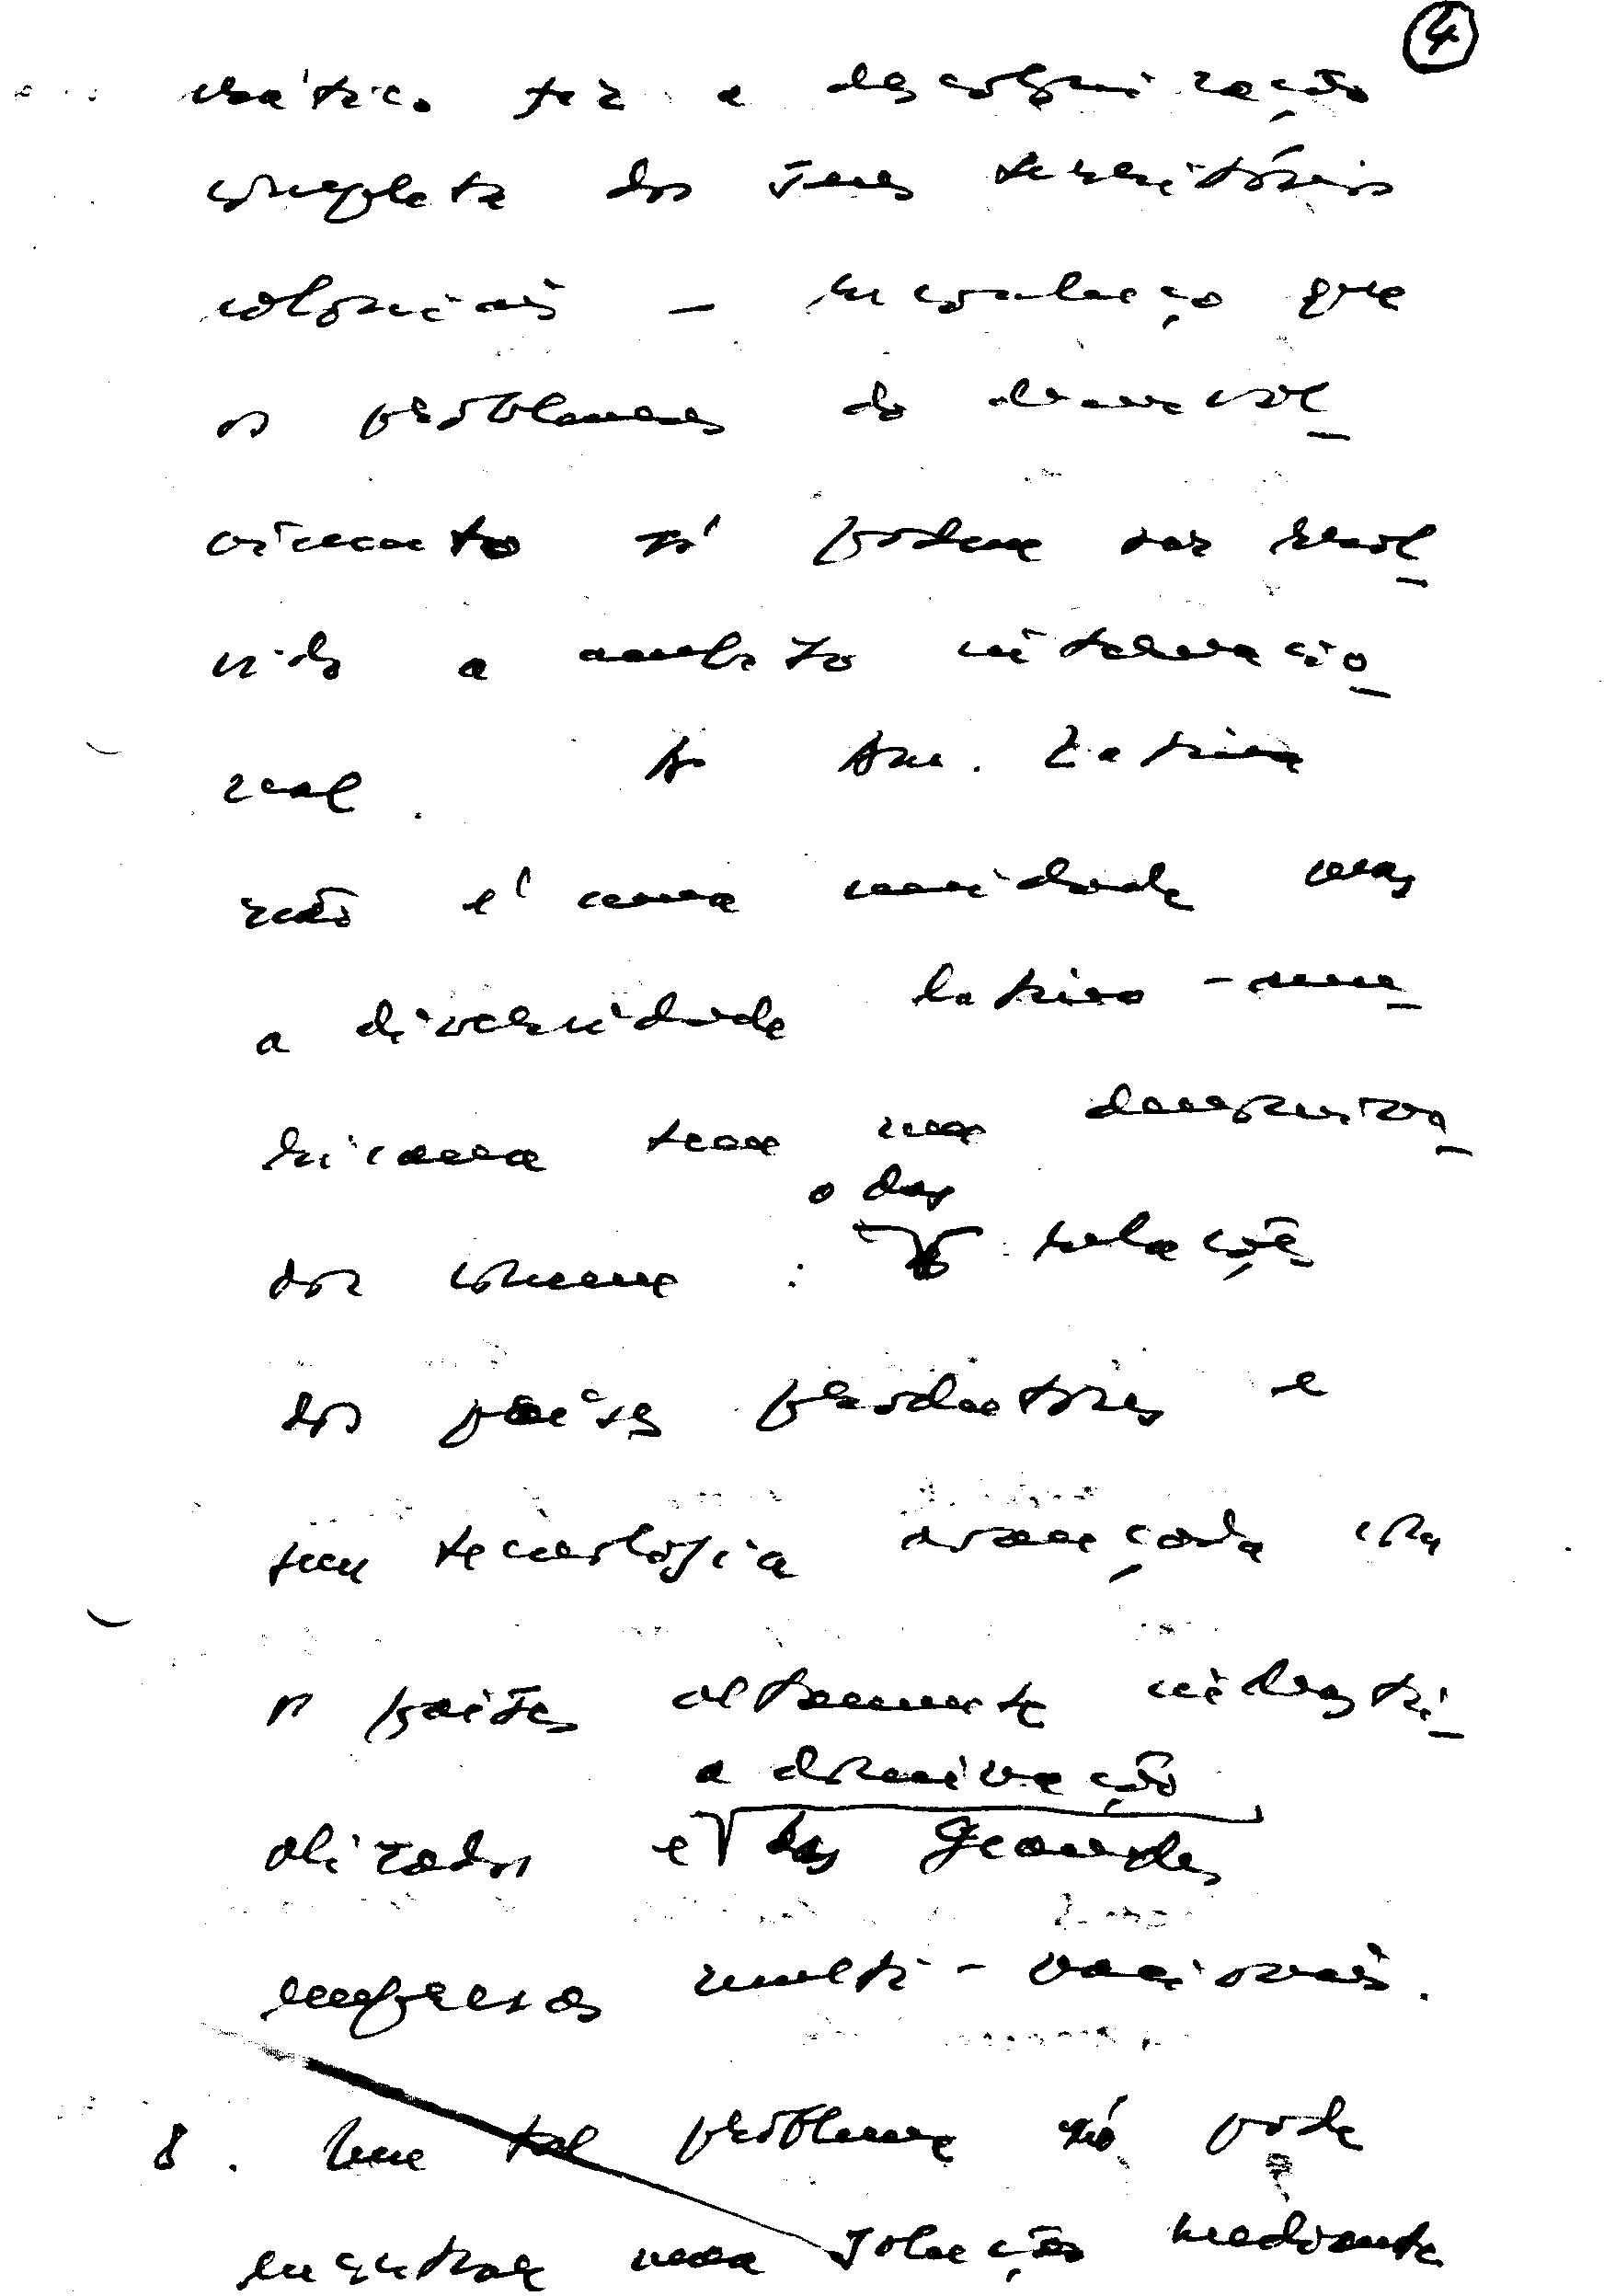 4
crático fez a descolonização
completa dos seus territórios
coloniais — reconheço que
os problemas do desenvol-
vimento só podem ser resol-
vidos a âmbito internacio-
nal. A Am. Latina
não é uma unidade mas
a diversidade latino-ame-
ricana tem um denomina-
dor comum : o das relações
dos países produtores e
sem tecnologia avançada com
os países altamente industri-
alizados e a dominação das grandes
empresas multi-nacionais.
8. Um tal problema só pode
encontrar uma solução mediante